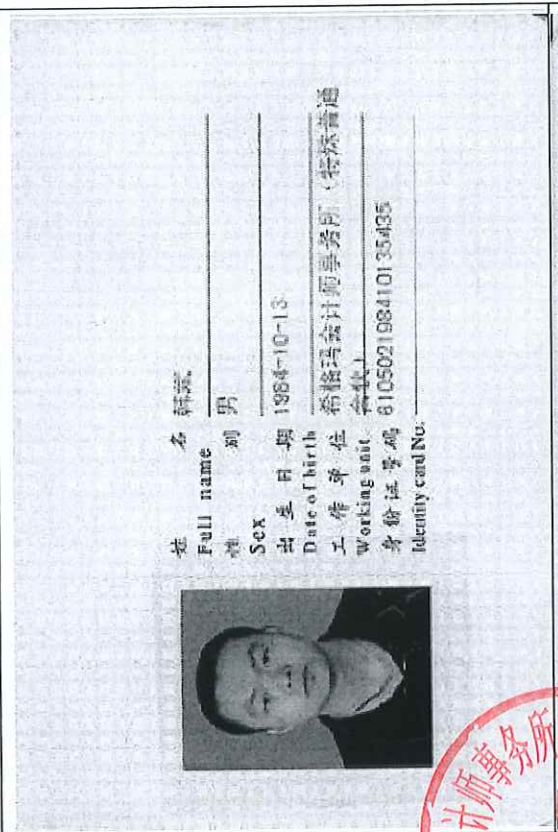 姓 名
Full name
性 别 男
Sex
出 生 日 期 1984-10-13
Date of birth
工 作 单 位 希格玛会计师事务所（特殊普通
Working unit 合伙）
身 份 证 号 码 610502198410135435
Identity card No.
计师事务所